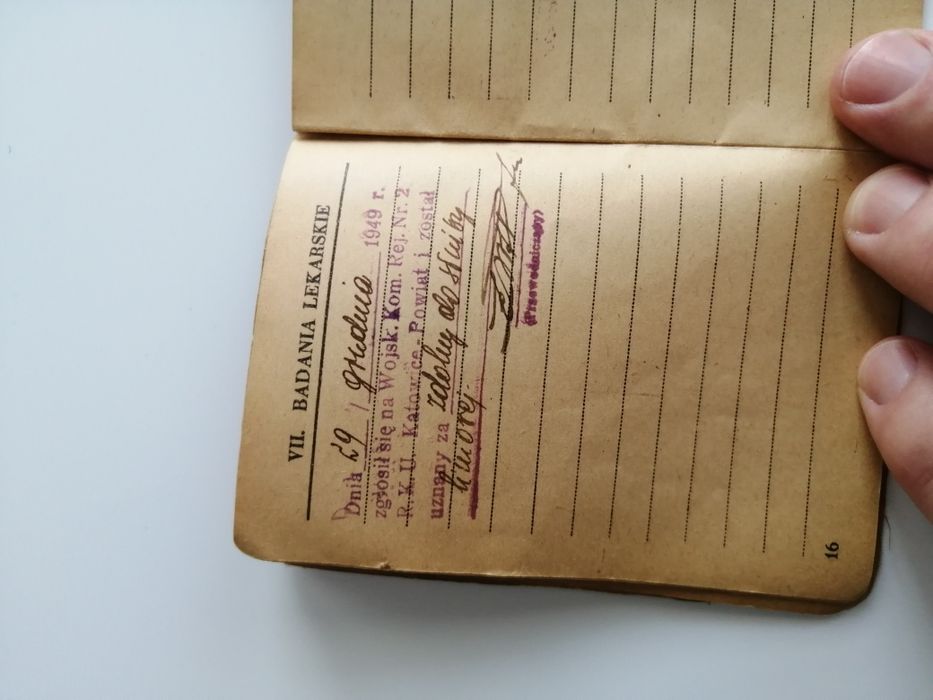 VII. BADANIA LEKARSKIE
Dnia 29 grudnia 1949 r.
zgłosił się na Wojsk. Kom. Rej. Nr. 2
R. K. U. Katowice - Powiat i został
uznany za zdolny do służby
(Przewodniczący)
16